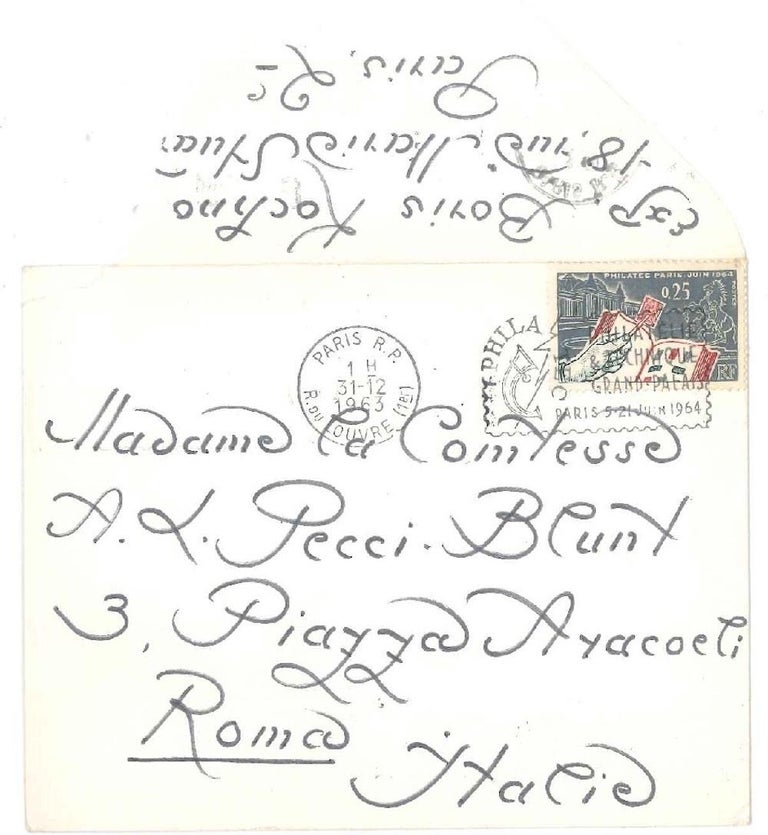 Exp. Boris Kochno
18, rue Marie Stuart
Paris, 2e
PHILATEC PARIS-JUIN 1964
0,25
POSTES
RF
PARIS R.P.
1 H
31-12
1963
R. DU LOUVRE (1er)
PHILATEC
PHILATELIE
& TECHNIQUE
GRAND-PALAIS
PARIS 5-21 JUIN 1964
Madame la Comtesse
A. L. Pecci-Blunt
3, Piazza Aracoeli
Roma
Italie